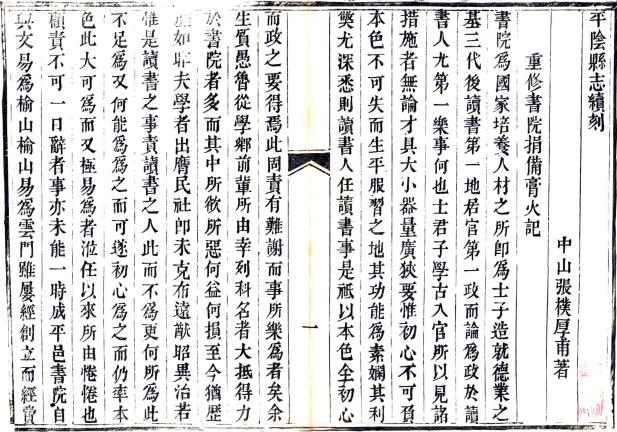 平陰縣志續刻
重修書院捐備膏火記
中山張樸厚甫著
書院爲國家培養人材之所卽爲士子造就德業之
基三代後讀書第一地居官第一政而論爲政於讀
書人尤第一樂事何也士君子學古入官所以見諸
措施者無論才具大小器量廣狹要惟初心不可負
本色不可失而生平服習之地其功能爲素嫻其利
獘尤深悉則讀書人任讀書事是祗以本色全初心
而政之要得焉此固責有難謝而事所樂爲者矣余
生質愚魯從學鄉前輩所由幸列科名者大抵得力
於書院者多而其中所欲所惡何益何損至今猶歷
歷如昨夫學者出膺民社卽未克布遠猷昭異治若
惟是讀書之事責讀書之人此而不爲更何所爲此
不足爲又何能爲爲之而可遂初心爲之而仍率本
色此大可爲而又極易爲者涖任以來所由惓惓也
顧責不可一日辭者事亦未能一時成平邑書院自
與文易爲榆山榆山易爲雲門雖屢經創立而經費
一